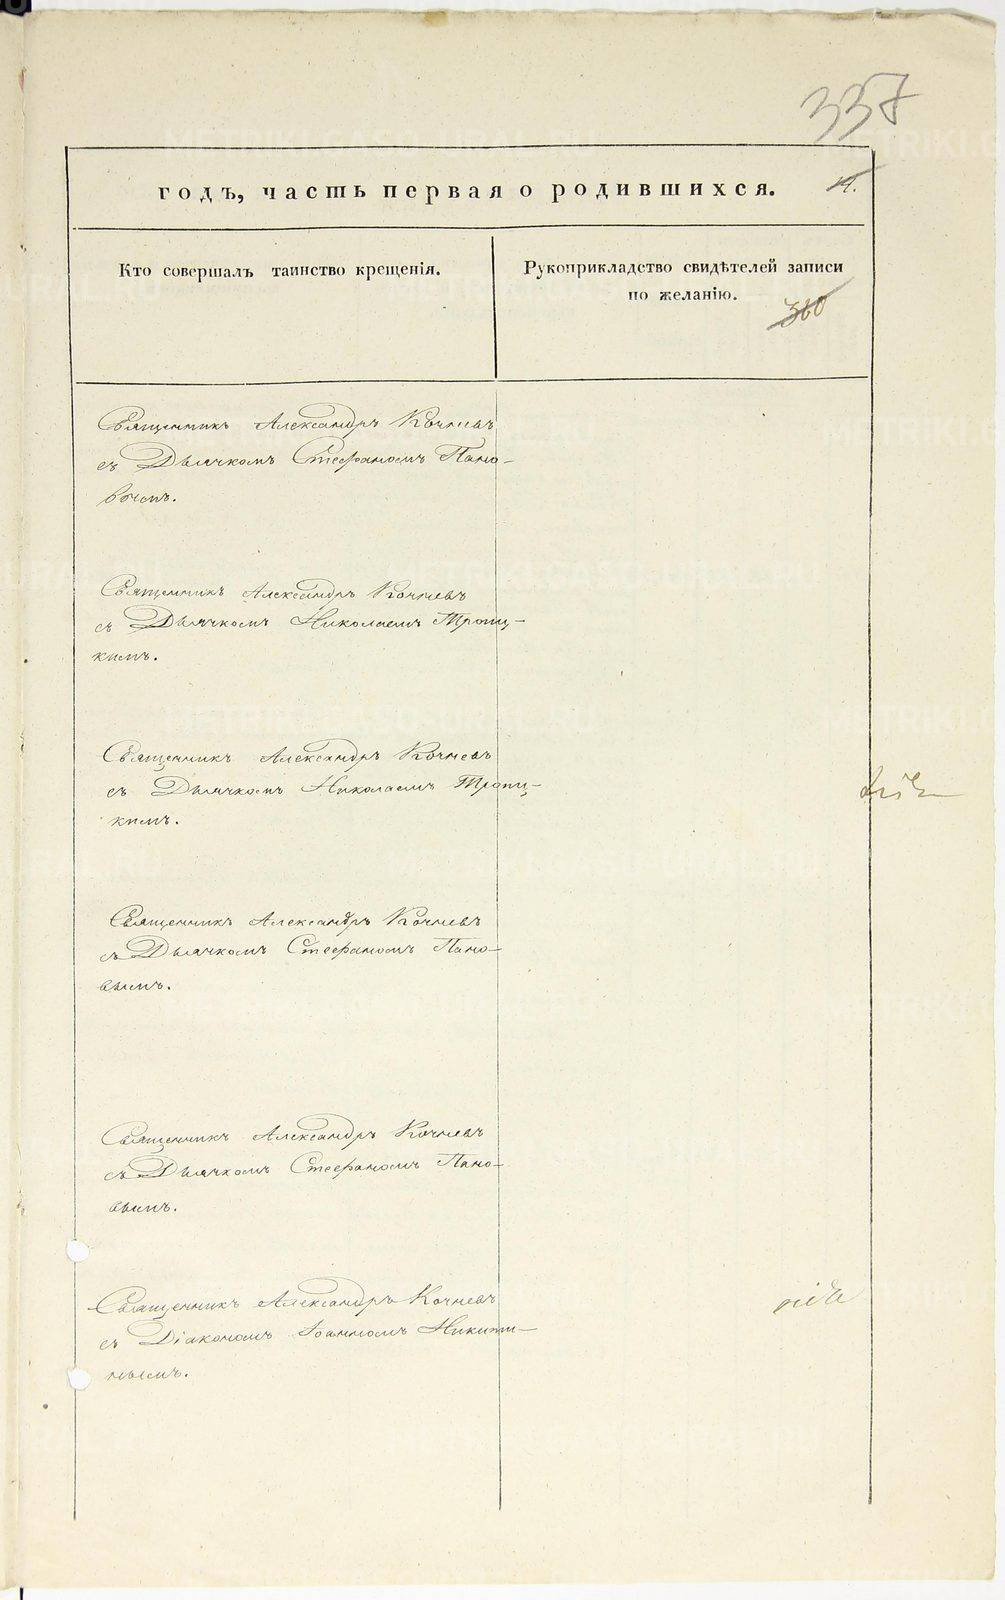 337
годъ, часть первая о родившихся.
14.
Кто совершалъ таинство крещенія.
Рукоприкладство свидѣтелей записи
по желанію.
360
Священникъ Александръ Кочневъ
съ Дьячкомъ Стефаномъ Пано-
вымъ.
Священникъ Александръ Кочневъ
съ Дьячкомъ Николаемъ Троиц-
кимъ.
Священникъ Александръ Кочневъ
съ Дьячкомъ Николаемъ Троиц-
кимъ.
Священникъ Александръ Кочневъ
съ Дьячкомъ Стефаномъ Пано-
вымъ.
Священникъ Александръ Кочневъ
съ Дьячкомъ Стефаномъ Пано-
вымъ.
Священникъ Александръ Кочневъ
съ Діакономъ Іоанномъ Никити-
нымъ.
METRIKI.GASO-URAL.RU